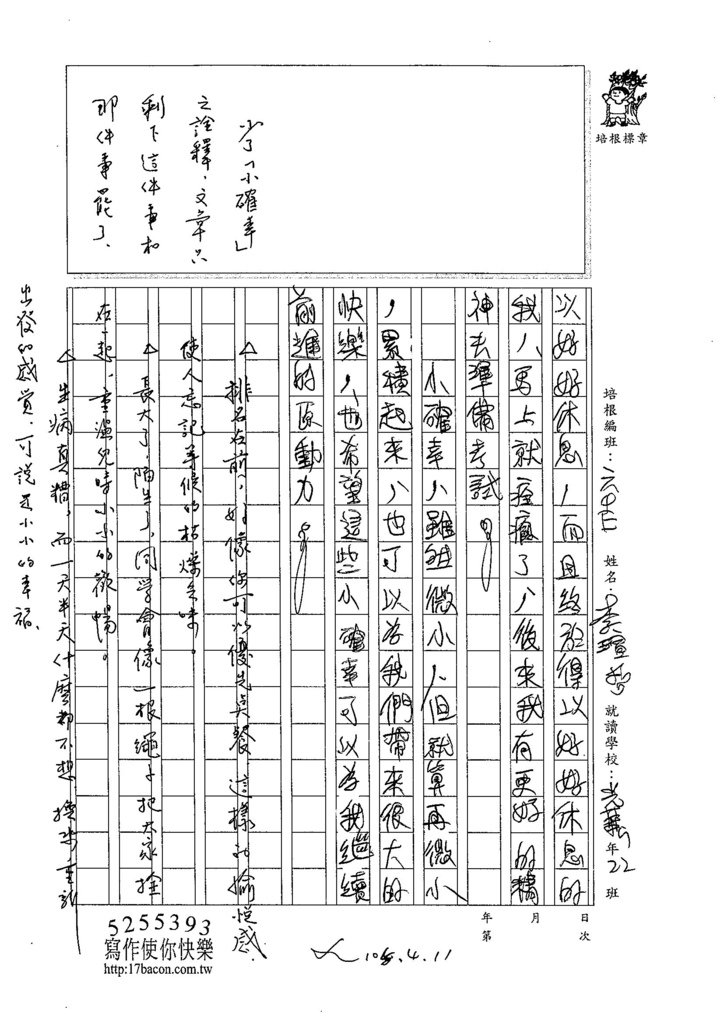 培根標章
培根編班：
姓名：李瑄
就讀學校：光華
年22班
日
次
月
年
第
以好好休息，而且終於得以好好休息的
我，馬上就痊癒了，後來我有更好的精
神去準備考試。
小確幸，雖然微小，但就算再微小
，累積起來，也可以為我們帶來很大的
快樂，也希望這些小確幸可以為我繼續
前進的原動力。
少了「小確幸」
之詮釋，文章只
剩下這件事和
那件事罷了。
△排名在前，好像你可以優先與餐，這樣的愉悅感，
使人忘記等候的枯燥乏味。
△長大了，陌生了，同學會像一根繩子把大家拴
在一起，重溫兒時小小的歡暢。
△生病真糟，而一天半天什麼都不想，換來重新
出發的感覺，可說是小小的幸福。
105.4.11
5255393
寫作使你快樂
http:17bacon.com.tw